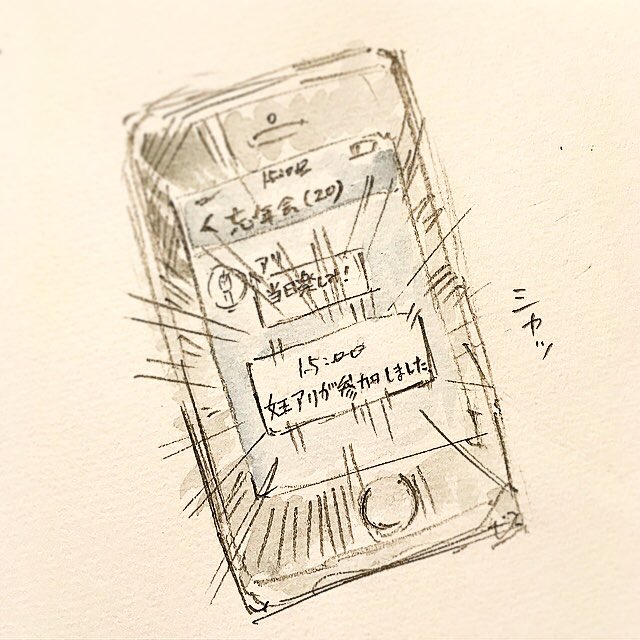 15:02
< 忘年会(20)
アリ
当日楽しみ!
15:00
女王アリが参加しました
ミカッ